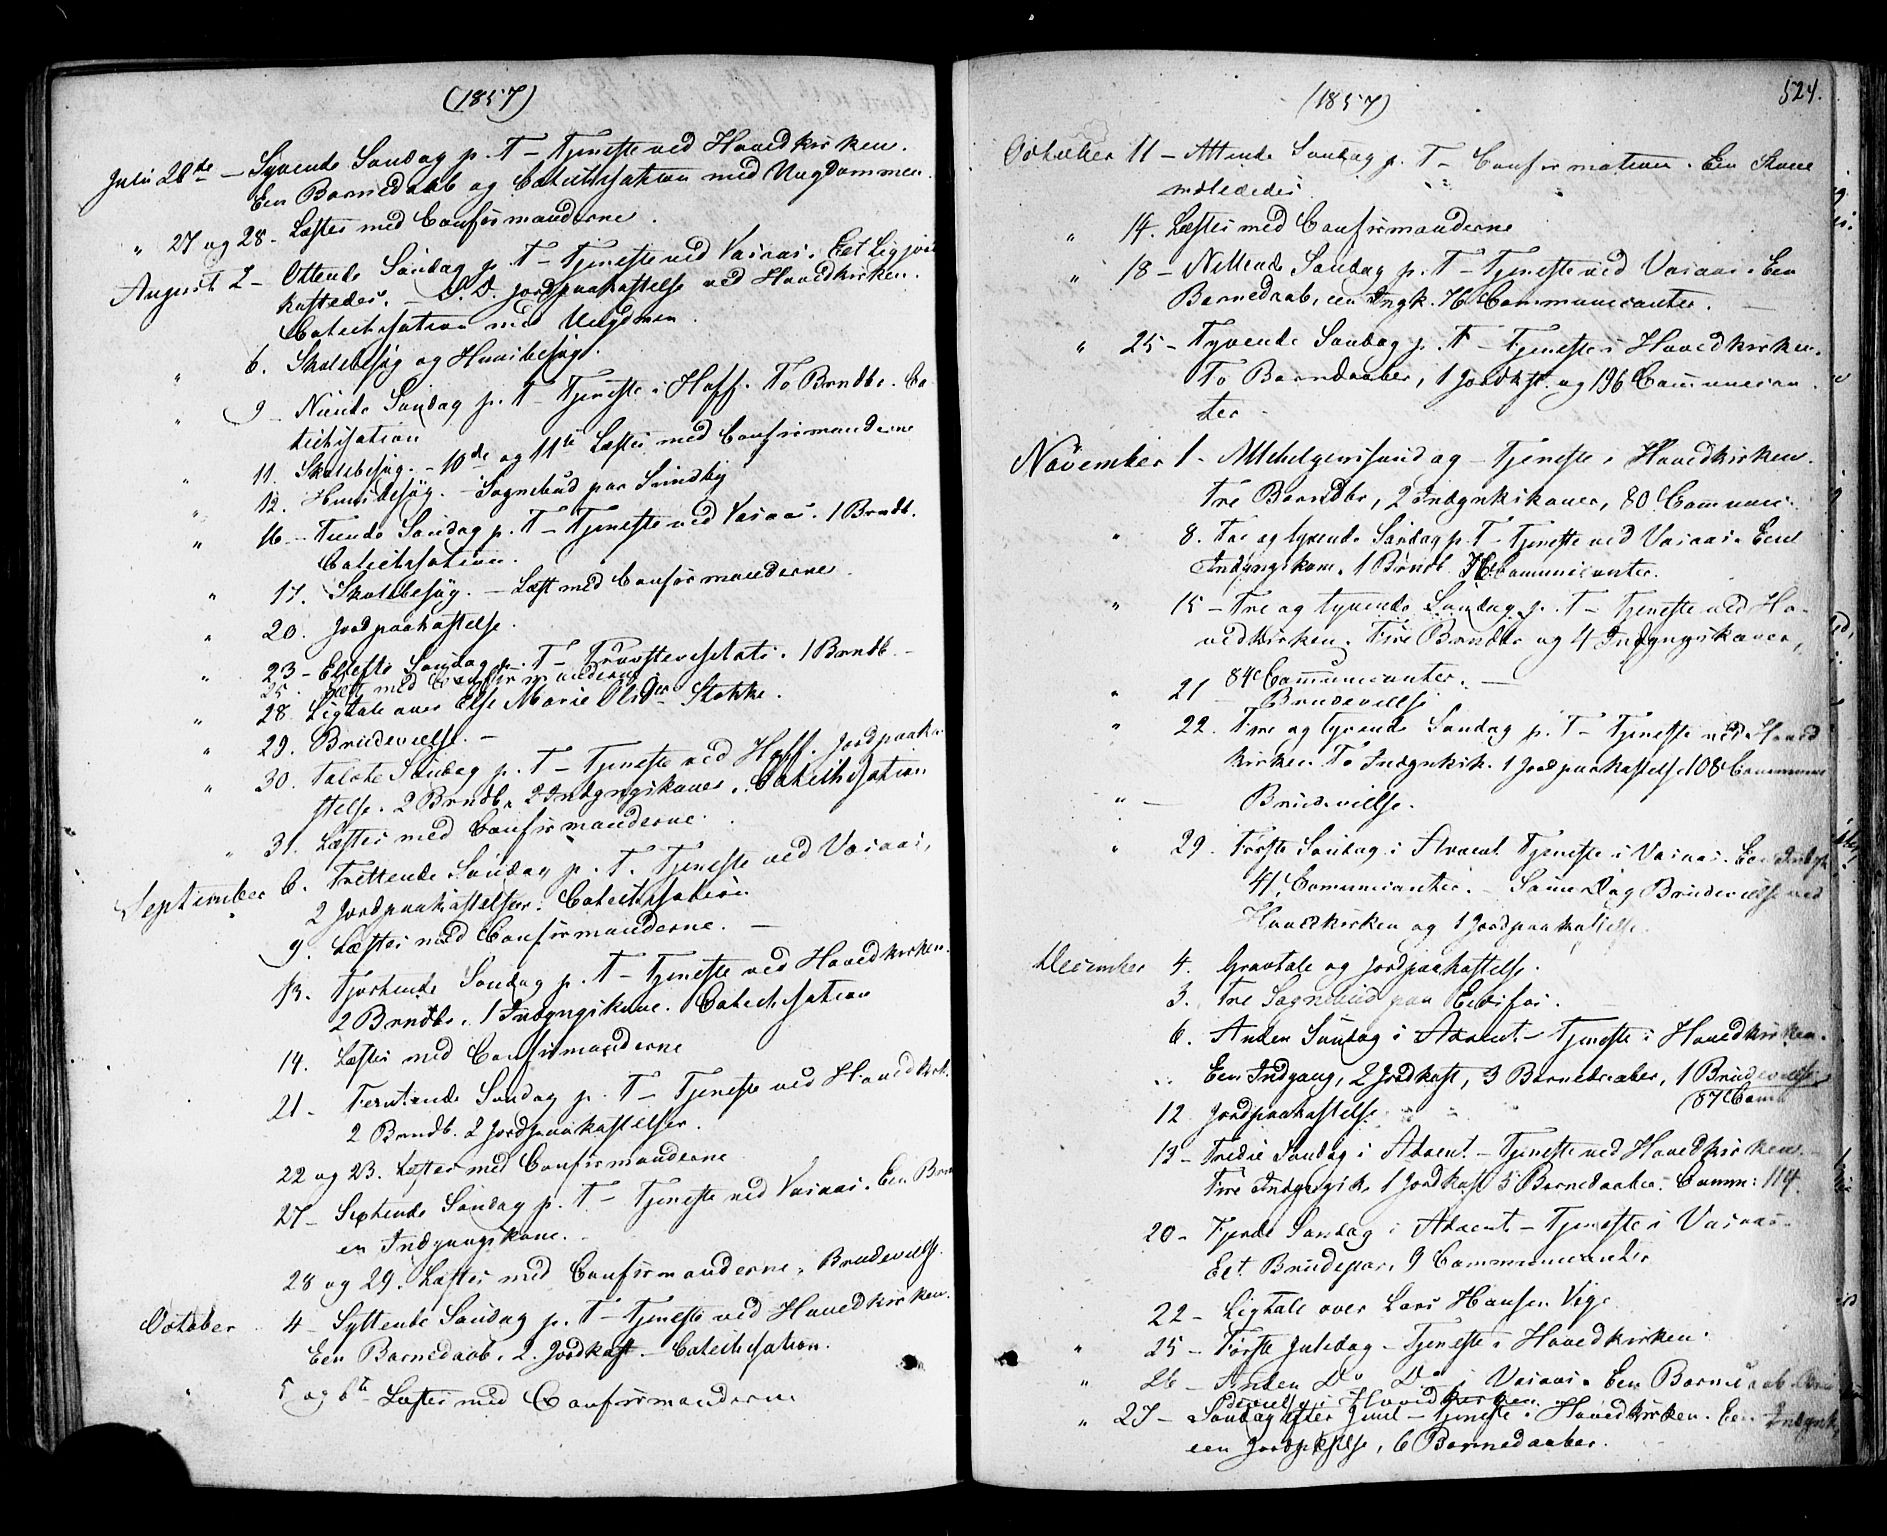 (1857)
Juli 26de – Syvende Søndag p. T – Tjeneste ved Hovedkirken.
Een Barnedaab og Catechisation med Ungdommen.
" 27 og 28. Læstes med Confirmanderne.
August 2 – Ottende Søndag p. T – Tjeneste ved Vasaas. Eet Lig jord
kastedes. – S. D. Jordpaakastelse ved Hovedkirken.
Catechisation med Ungdmen.
" 6. Skolebesøg og Huusbesøg.
" 9 – Niende Søndag p. T – Tjeneste i Hoff. To Brndb. Ca
techisation
" 11. Skolebesøg. – 10de og 11te Læstes med Confirmanderne
" 12. Huusbesøg. – Sognebud paa Sundby
" 16 – Tiende Søndag p. T – Tjeneste ved Vasaas. 1 Brndb.
Catechisation.
" 17. Skolebesøg. – Læst med Confirmanderne.
" 20. Jordpaakastelse.
" 23 – Ellefte Søndag p. T – Provstevisitats. 1 Brndb. –
25. Læst med Confirmanderne
" 28. Ligtale over Else Marie Olsdr Stokke.
" 29. Brudevielse. –
" 30. Tolvte Søndag p. T – Tjeneste ved Hoff. Jordpaaka
stelse. 2 Brndb. 2 Indgngskoner. Catechisation
" 31. Læstes med Confirmanderne.
September 6. Trettende Søndag p. T. Tjeneste ved Vasaas,
2 Jordpaakastelser. Catechisation
9. Læstes med Confirmanderne. –
13. Fjortende Søndag p. T – Tjeneste ved Hovedkirken.
2 Brndb. 1 Indgngskone. Catechisation
14. Læstes med Confirmanderne
21 – Femtende Søndag p. T – Tjeneste ved Hovedkirk.
2 Brndb. 2 Jordpaakastelser.
22 og 23. Læstes med Confirmanderne
27 – Sextende Søndag p. T – Tjeneste ved Vasaas. Een Brn
en Indgangskone.
28 og 29. Læstes med Confirmanderne. Brudevielse.
October 4 – Syttende Søndag p. T – Tjeneste ved Hovedkirken.
Een Barnedaab. 2 Jordkast – Catechisation.
" 5 og 6te Læstes med Confirmanderne
(1857)
524.
October 11 – Attende Søndag p. T – Confirmation. Een Kone
indlededes
" 14. Læstes med Confirmanderne
" 18 – Nittende Søndag p. T – Tjeneste ved Vasaas. Een
Barnedaab, een Ingk. 76 Communicanter. –
" 25 – Tyvende Søndag p. T – Tjeneste i Hovedkirken.
To Barndaaber, 1 Jordkst. og 196 Communican
ter –
November 1 – Allehelgenssøndag – Tjeneste i Hovedkirken.
Tre Barndbr, 2 Indgnkskoner, 80 Commun:
" 8. Toe og tyvende Søndag p. T – Tjeneste ved Vasaas. Een
Indgngskone. 1 Brndb. Communicanter.
" 15 – Tre og tyvende Søndag p. T – Tjeneste ved Ho–
vedkirken. Fire Brndbr og 4 Indgngskoner,
84 Communicanter. –
" 21 – Brudevielse
" 22. Fire og tyvende Søndag p. T – Tjeneste ved Hoved
kirken. To Indgnksk. 1 Jordpaakastelse. 108 Commun
" – Brudevielse.
" 29. Første Søndag i Advent Tjeneste i Vasaas. Een Indgk
41. Comunicanter. – Samme Dag Brudevielse ved
Hovedkirken og 1 Jordpaakastelse.
December 4. Gravtale og Jordpaakastelse.
3. Tre Sognebud paa Eidsfos. –
6. Anden Søndag i Advent – Tjeneste i Hovedkirken.
Een Indgang, 2 Jordkast, 3 Barnedaaber, 1 Brudevielse
(87 Comm
12 Jordpaakastelse.
13 – Tredie Søndag i Advent – Tjeneste ved Hovedkirken. –
Fire Indgngsk. 1 Jordkast 5 Barnedaaber. Comm: 114.
20 – Fjerde Søndag i Advent – Tjeneste i Vasaas.
Eet Brudepar, 9 Communicanter
22 – Ligtale over Lars Hansen Vige
" 25 – Første Juledag – Tjeneste i Hovedkirken.
" 26 – Anden Do Do i Vasaas. Een Barnedaab
devielse i Hovedkirken.
" 27 – Søndag efter Juul – Tjeneste i Hovedkirken. Een Indgnk.
een Jordpkstlse, 6 Barnedaaber.